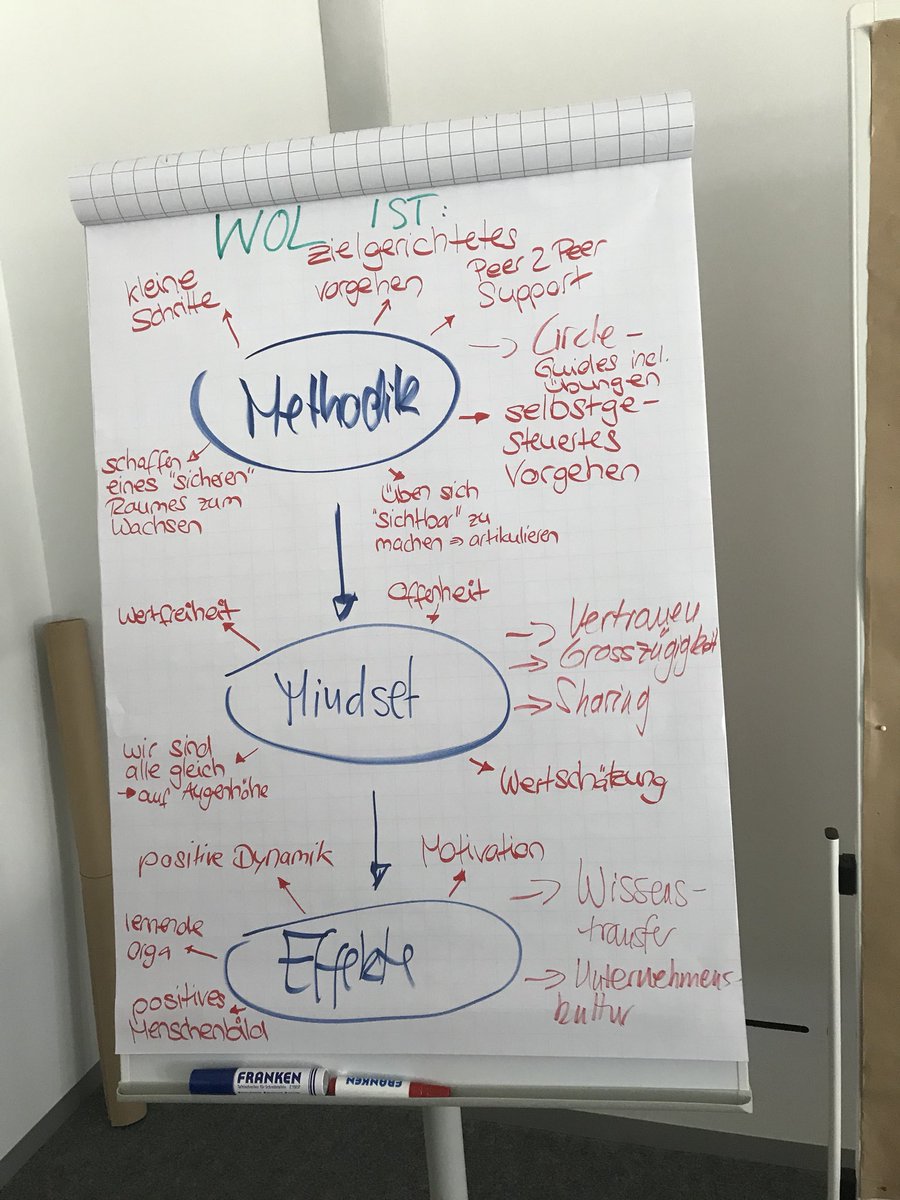 WOL IST:
kleine
Schritte
zielgerichtetes
vorgehen
Peer 2 Peer
Support
Circle-
Guides incl.
Übungen
Methodik
selbstge-
steuertes
Vorgehen
schaffen
eines "sicheren"
Raumes zum
Wachsen
Üben sich
"sichtbar" zu
machen => artikulieren
Wertfreiheit
Offenheit
Vertrauen
Grosszügigkeit
Sharing
Mindset
wir sind
alle gleich
auf Augenhöhe
Wertschätzung
positive Dynamik
Motivation
Wissens-
transfer
Effekte
lernende
Orga
Unternehmens-
kultur
positives
Menschenbild
FRANKEN
FRANKEN